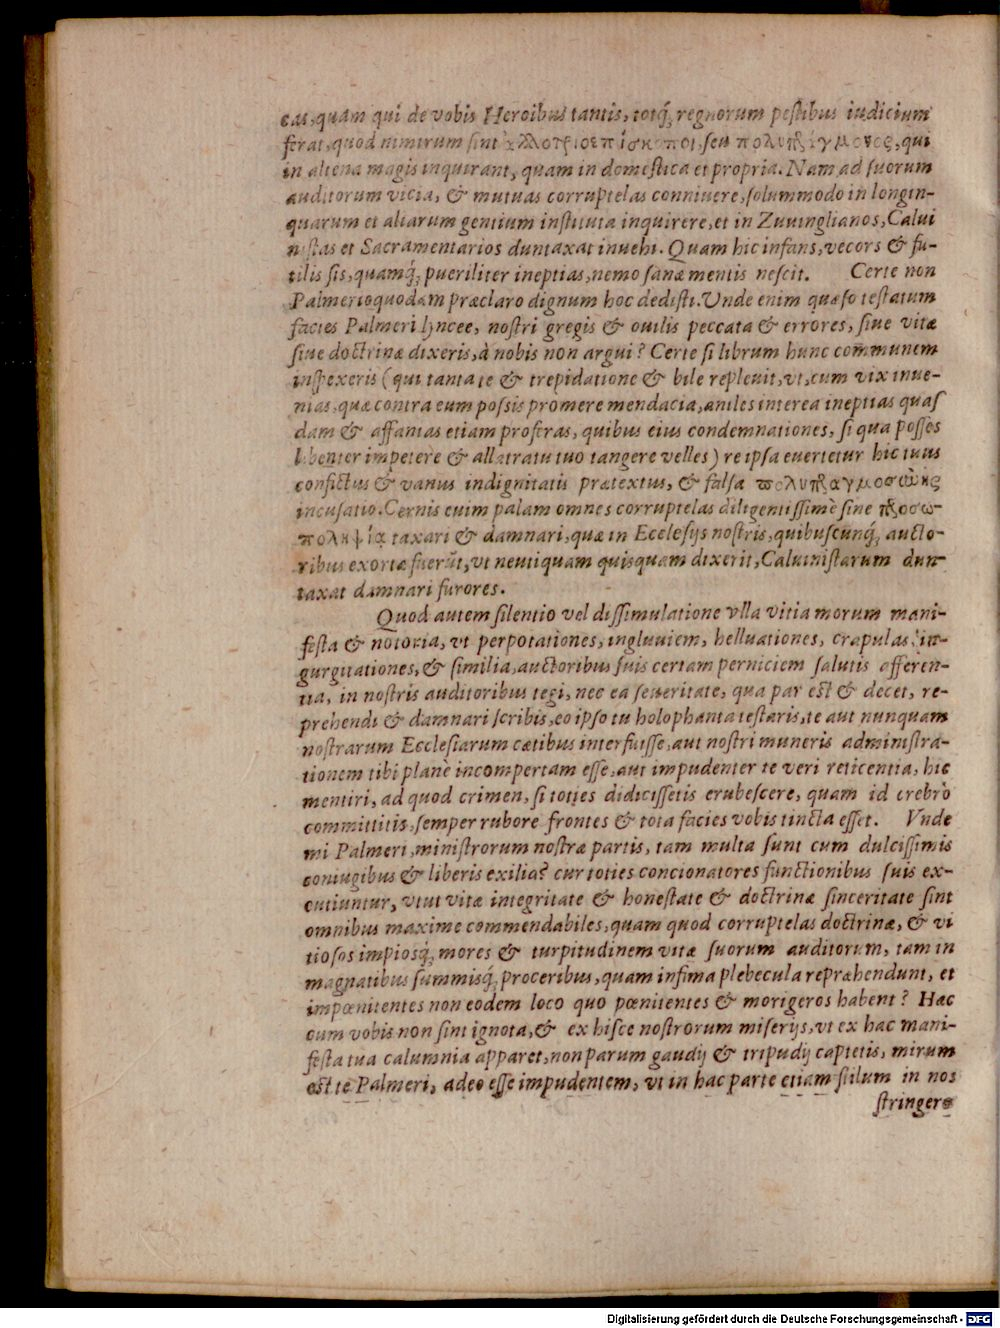 cas, quam qui de vobis Heroibus tantis, totq́; regnorum pestibus iudicium
ferat, quod nimirum sint ἀλλοτριοεπίσκοποι, seu πολυπράγμονες, qui
in aliena magis inquirant, quam in domestica et propria. Nam ad suorum
auditorum vicia, & mutuas corruptelas conniuere, solummodo in longin-
quarum et aliarum gentium instituta inquirere, et in Zuuinglianos, Calui
nistas et Sacramentarios duntaxat inuehi. Quam hic infans, vecors & fu-
tilis sis, quamq́; pueriliter ineptias, nemo sanæ mentis nescit. Certe non
Palmerio quodam præclaro dignum hoc dedisti. Unde enim quæso testatum
facies Palmeri lyncee, nostri gregis & ouilis peccata & errores, siue vitæ
siue doctrinæ dixeris, à nobis non argui? Certe si librum hunc communem
inspexeris (qui tanta te & trepidatione & bile repleuit, vt, cum vix inue-
nias, quæ contra eum possis promere mendacia, aniles interea ineptias quas
dam & affanias etiam proferas, quibus eius condemnationes, si qua posses
libenter impetere & allatratu tuo tangere velles) re ipsa euertetur hic tuus
confictus & vanus indignitatis prætextus, & falsa πολυπραγμοσύνης
incusatio. Cernis euim palam omnes corruptelas diligentissimè sine προσω-
πολημψίᾳ taxari & damnari, quæ in Ecclesijs nostris, quibuscunq́; aucto-
ribus exortæ fuerūt, vt neutiquam quisquam dixerit, Caluinistarum dun-
taxat damnari furores.
Quod autem silentio vel dissimulatione vlla vitia morum mani-
festa & notoria, vt perpotationes, ingluuiem, helluationes, crapulas, in-
gurgitationes, & similia, auctoribus suis certam perniciem salutis afferen-
tia, in nostris auditoribus tegi, nec ea seueritate, qua par est & decet, re-
prehendi & damnari scribis, eo ipso tu holophanta testaris, te aut nunquam
nostrarum Ecclesiarum cætibus interfuisse, aut nostri muneris administra-
tionem tibi planè incompertam esse, aut impudenter te veri reticentia, hic
mentiri, ad quod crimen, si toties didicissetis erubescere, quam id crebrò
committitis, semper rubore frontes & tota facies vobis tincta esset. Vnde
mi Palmeri, ministrorum nostræ partis, tam multa sunt cum dulcissimis
coniugibus & liberis exilia? cur toties concionatores functionibus suis ex-
cutiuntur, vtut vitæ integritate & honestate & doctrinæ sinceritate sint
omnibus maxime commendabiles, quam quod corruptelas doctrinæ, & vi
tiosos impiosq́; mores & turpitudinem vitæ suorum auditorum, tam in
magnatibus summisq́; proceribus, quam infima plebecula repræhendunt, et
impœnitentes non eodem loco quo pœnitentes & morigeros habent? Hac
cum vobis non sint ignota, & ex hisce nostrorum miserijs, vt ex hac mani-
festa tua calumnia apparet, non parum gaudij & tripudij captetis, mirum
est te Palmeri, adeo esse impudentem, vt in hac parte etiam stilum in nos
stringere
Digitalisierung gefördert durch die Deutsche Forschungsgemeinschaft - DFG